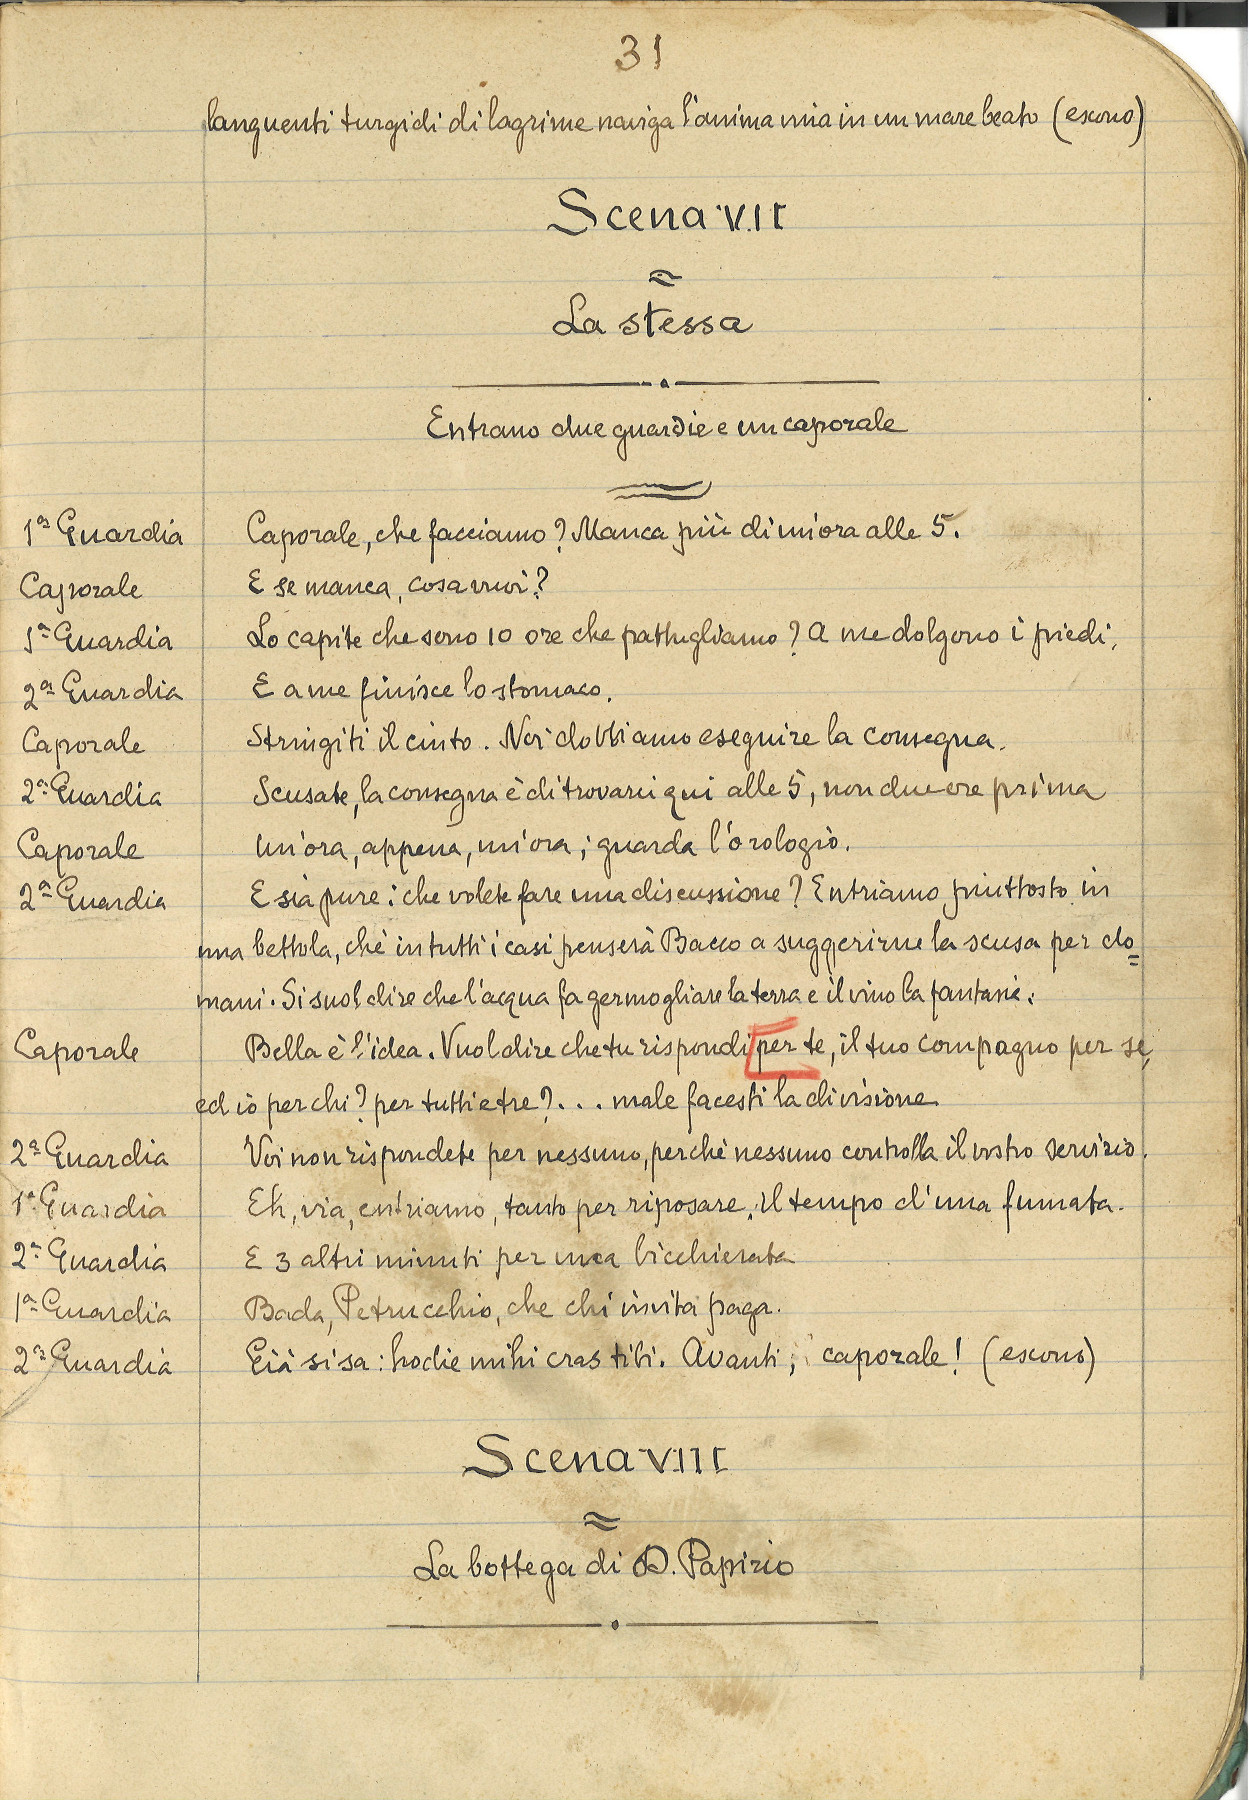 31
languenti turgidi di lagrime naviga l'anima mia in un mare beato (escono)
Scena VII
La stessa
Entrano due guardie e un caporale
1ª Guardia Caporale, che facciamo? Manca più di un'ora alle 5.
Caporale E se manca, cosa vuoi?
1ª Guardia Lo capite che sono 10 ore che pattugliamo? A me dolgono i piedi.
2ª Guardia E a me finisce lo stomaco.
Caporale Stringiti il cinto. Noi dobbiamo eseguire la consegna.
2ª Guardia Scusate, la consegna è di trovarci qui alle 5, non due ore prima
Caporale Un'ora, appena, un'ora; guarda l'orologio.
2ª Guardia E sia pure: che volete fare una discussione? Entriamo piuttosto in
una bettola, chè in tutti i casi penserà Bacco a suggerirne la scusa per do=
mani. Si suol dire che l'acqua fa germogliare la terra e il vino la fantasie.
Caporale Bella è l'idea. Vuol dire che tu rispondi per te, il tuo compagno per se,
ed io per chi? per tutti e tre?... male facesti la divisione
2ª Guardia Voi non rispondete per nessuno, perchè nessuno controlla il vostro servizio.
1ª Guardia Eh, via, entriamo, tanto per riposare, il tempo d'una fumata.
2ª Guardia E 3 altri minuti per una bicchierata
1ª Guardia Bada, Petrucchio, che chi invita paga.
2ª Guardia Già si sa: hodie mihi cras tibi. Avanti, caporale! (escono)
Scena VIII
La bottega di D. Papirio